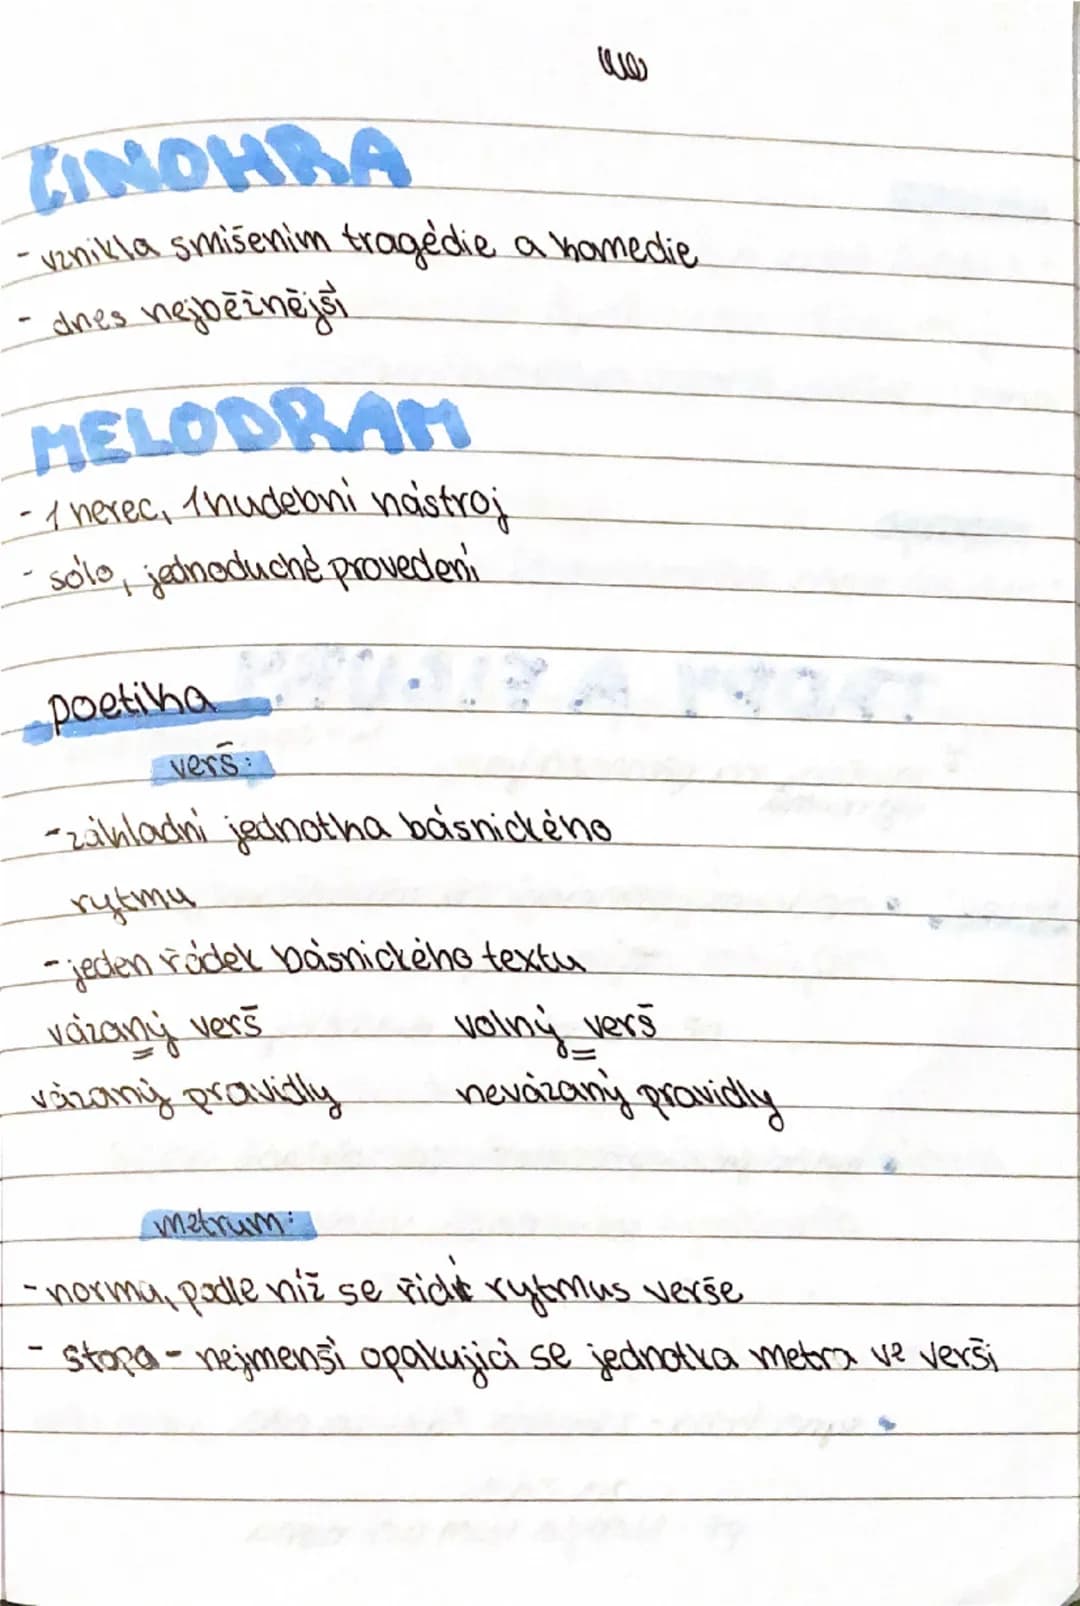 ČINOHRA
- vznikla smíšením tragédie a komedie
- dnes nejběžnější
MELODRAM
- 1 herec, 1 hudební nástroj
- sólo, jednoduché provedení
poetika
verš:
- základní jednotka básnického
rytmu
- jeden řádek básnického textu
vázaný verš volný verš
= =
vázaný pravidly nevázaný pravidly
metrum:
- norma, podle níž se řídí rytmus verše
- stopa - nejmenší opakující se jednotka metra ve verši